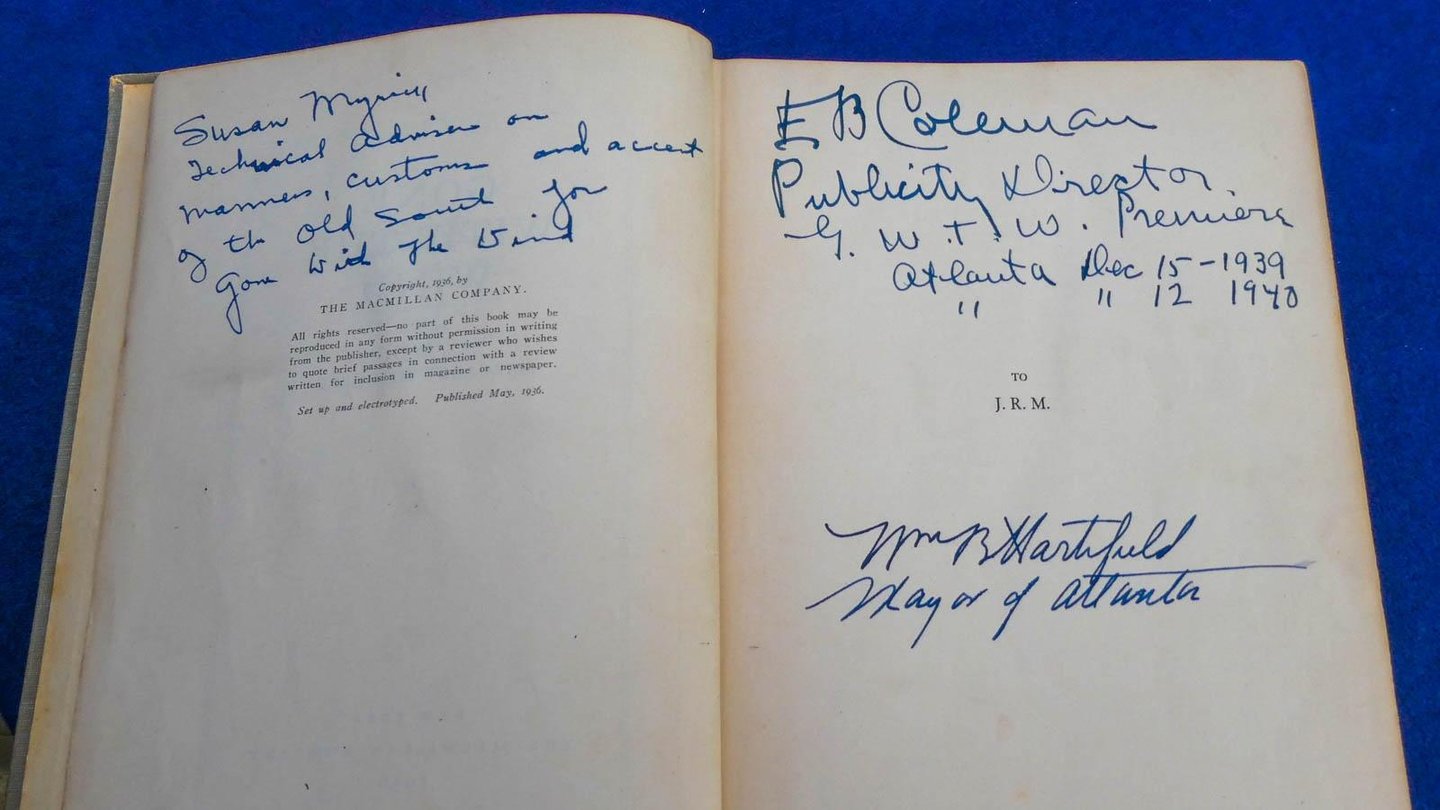 Susan Myrick
Technical Adviser on
manners, customs and accent
of the Old South for
Gone With The Wind
Copyright, 1936, by
THE MACMILLAN COMPANY.
All rights reserved—no part of this book may be
reproduced in any form without permission in writing
from the publisher, except by a reviewer who wishes
to quote brief passages in connection with a review
written for inclusion in magazine or newspaper.
Set up and electrotyped. Published May, 1936.
E B Coleman
Publicity Director.
G. W. T. W. Premiere
Atlanta Dec 15 - 1939
" " 12 1940
TO
J. R. M.
Wm B Hartsfield
Mayor of Atlanta